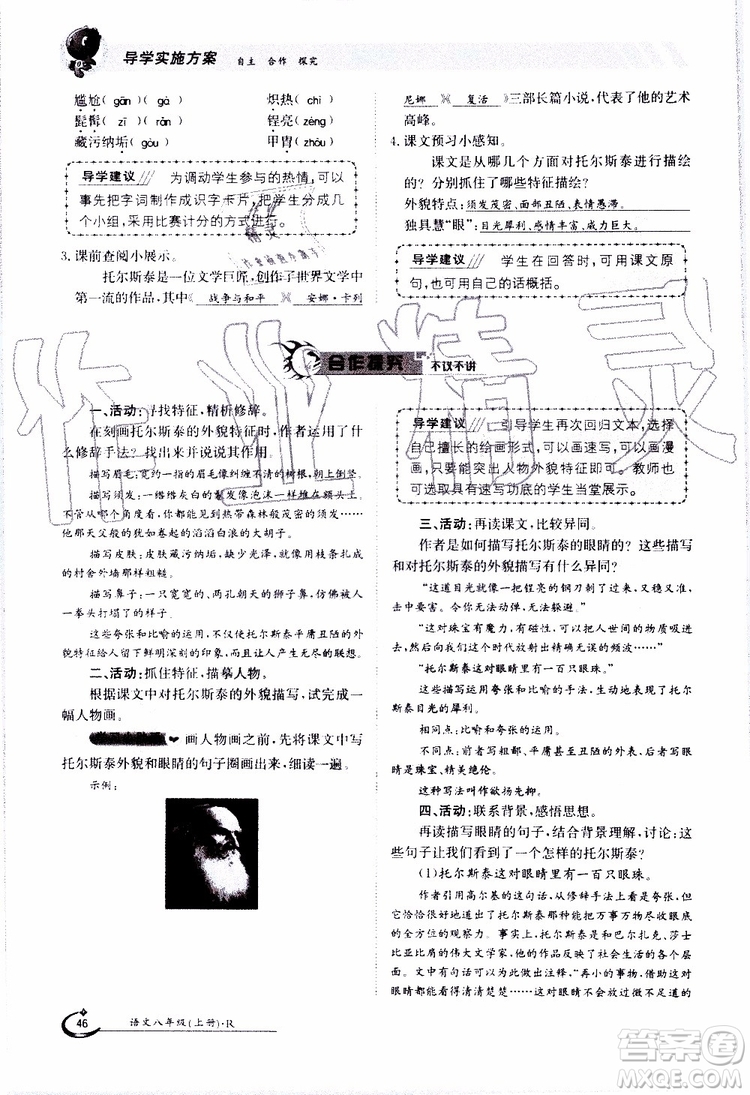 导学实施方案 自主 合作 探究
尴尬（gān）（gà） 炽热（chì）
髭髯（zī）（rán） 锃亮（zèng）
藏污纳垢（gòu） 甲胄（zhòu）
导学建议 为调动学生参与的热情，可以
事先把字词制作成识字卡片，把学生分成几
个小组，采用比赛计分的方式进行。
3. 课前查阅小展示。
托尔斯泰是一位文学巨匠，创作了世界文学中
第一流的作品，其中《战争与和平》《安娜·卡列
尼娜》《复活》三部长篇小说，代表了他的艺术
高峰。
4. 课文预习小感知。
课文是从哪几个方面对托尔斯泰进行描绘
的？分别抓住了哪些特征描绘的？
外貌特点：须发茂密、面部丑陋、表情愚滞。
独具慧“眼”：目光犀利、感情丰富、威力巨大。
导学建议 学生在回答时，可用课文原
句，也可用自己的话概括。
合作探究 不议不讲
一、活动：寻找特征，精析修辞。
在刻画托尔斯泰的外貌特征时，作者运用了什
么修辞手法？找出来并说说表达作用。
描写眉毛：宽约一指的眉毛像纠缠不清的树根，朝上倒竖。
描写须发：一绺绺灰白的鬈发像泡沫一样堆在额头上。
不管从哪个角度看，你都能见到热带森林般茂密的须发……
他那天父般的犹如卷起的滔滔白浪的大胡子。
描写皮肤：皮肤藏污纳垢，缺少光泽，就像用枝条扎成
的村舍外墙那样粗糙。
描写鼻子：一只宽宽的、两孔朝天的狮子鼻，仿佛被人一
拳头打塌了的样子。
这些夸张和比喻的运用，不仅使托尔斯泰平庸丑陋的外
貌给人留下鲜明深刻的印象，而且让人产生无尽的联想。
二、活动：抓住特征，描摹人物。
根据课文中对托尔斯泰的外貌描写，试完成一
幅人物画。
画人物画之前，先将课文中写
托尔斯泰外貌和眼睛的句子圈画出来，细读一遍。
示例：
导学建议 引导学生再次回归文本，选择
自己擅长的绘画形式，可以画速写，可以画漫
画，只要能突出人物外貌特征即可。教师也
可选取具有速写功底的学生当堂展示。
三、活动：再读课文，比较异同。
作者是如何描写托尔斯泰的眼睛的？这些描写
和对托尔斯泰的外貌描写有什么异同？
“这道目光就像一把锃亮的钢刀刺了过来，又稳又准，击
中要害。令你无法动弹，无法躲避。”
“这对珠宝有魔力，有磁性，可以把人世间的物质吸进
去，然后向我们这个时代放射出精确无误的频波……”
“托尔斯泰这对眼睛里有一百只眼珠。”
这些描写运用了夸张和比喻的手法，生动形象地写出了托
尔斯泰目光的犀利。
相同点：比喻和夸张的运用。
不同点：前者写粗鄙、平庸甚至丑陋的外表；后者写眼
睛是珠宝、精美绝伦。
这种写法叫作欲扬先抑。
四、活动：联系背景，感悟思想。
再读描写眼睛的句子，结合背景理解，讨论：这
些句子让我们看到了一个怎样的托尔斯泰？
（1）托尔斯泰这对眼睛里有一百只眼珠。
作者引用高尔基的这句话，从修辞手法上说是夸张，但
它恰恰很好地道出了托尔斯泰那种能把万事万物尽收眼底
的全方位的观察力。正是这种观察力，使托尔斯泰和巴尔扎克、莎士
比亚比肩的伟大文学家，甚至他的作品反映了社会生活的
方方面面。文中有句话可以做它的注释，“再小的事物，借助这对
眼睛都能看得清清楚楚……”
46 语文八年级（上册）·R
作业精灵
答案圈